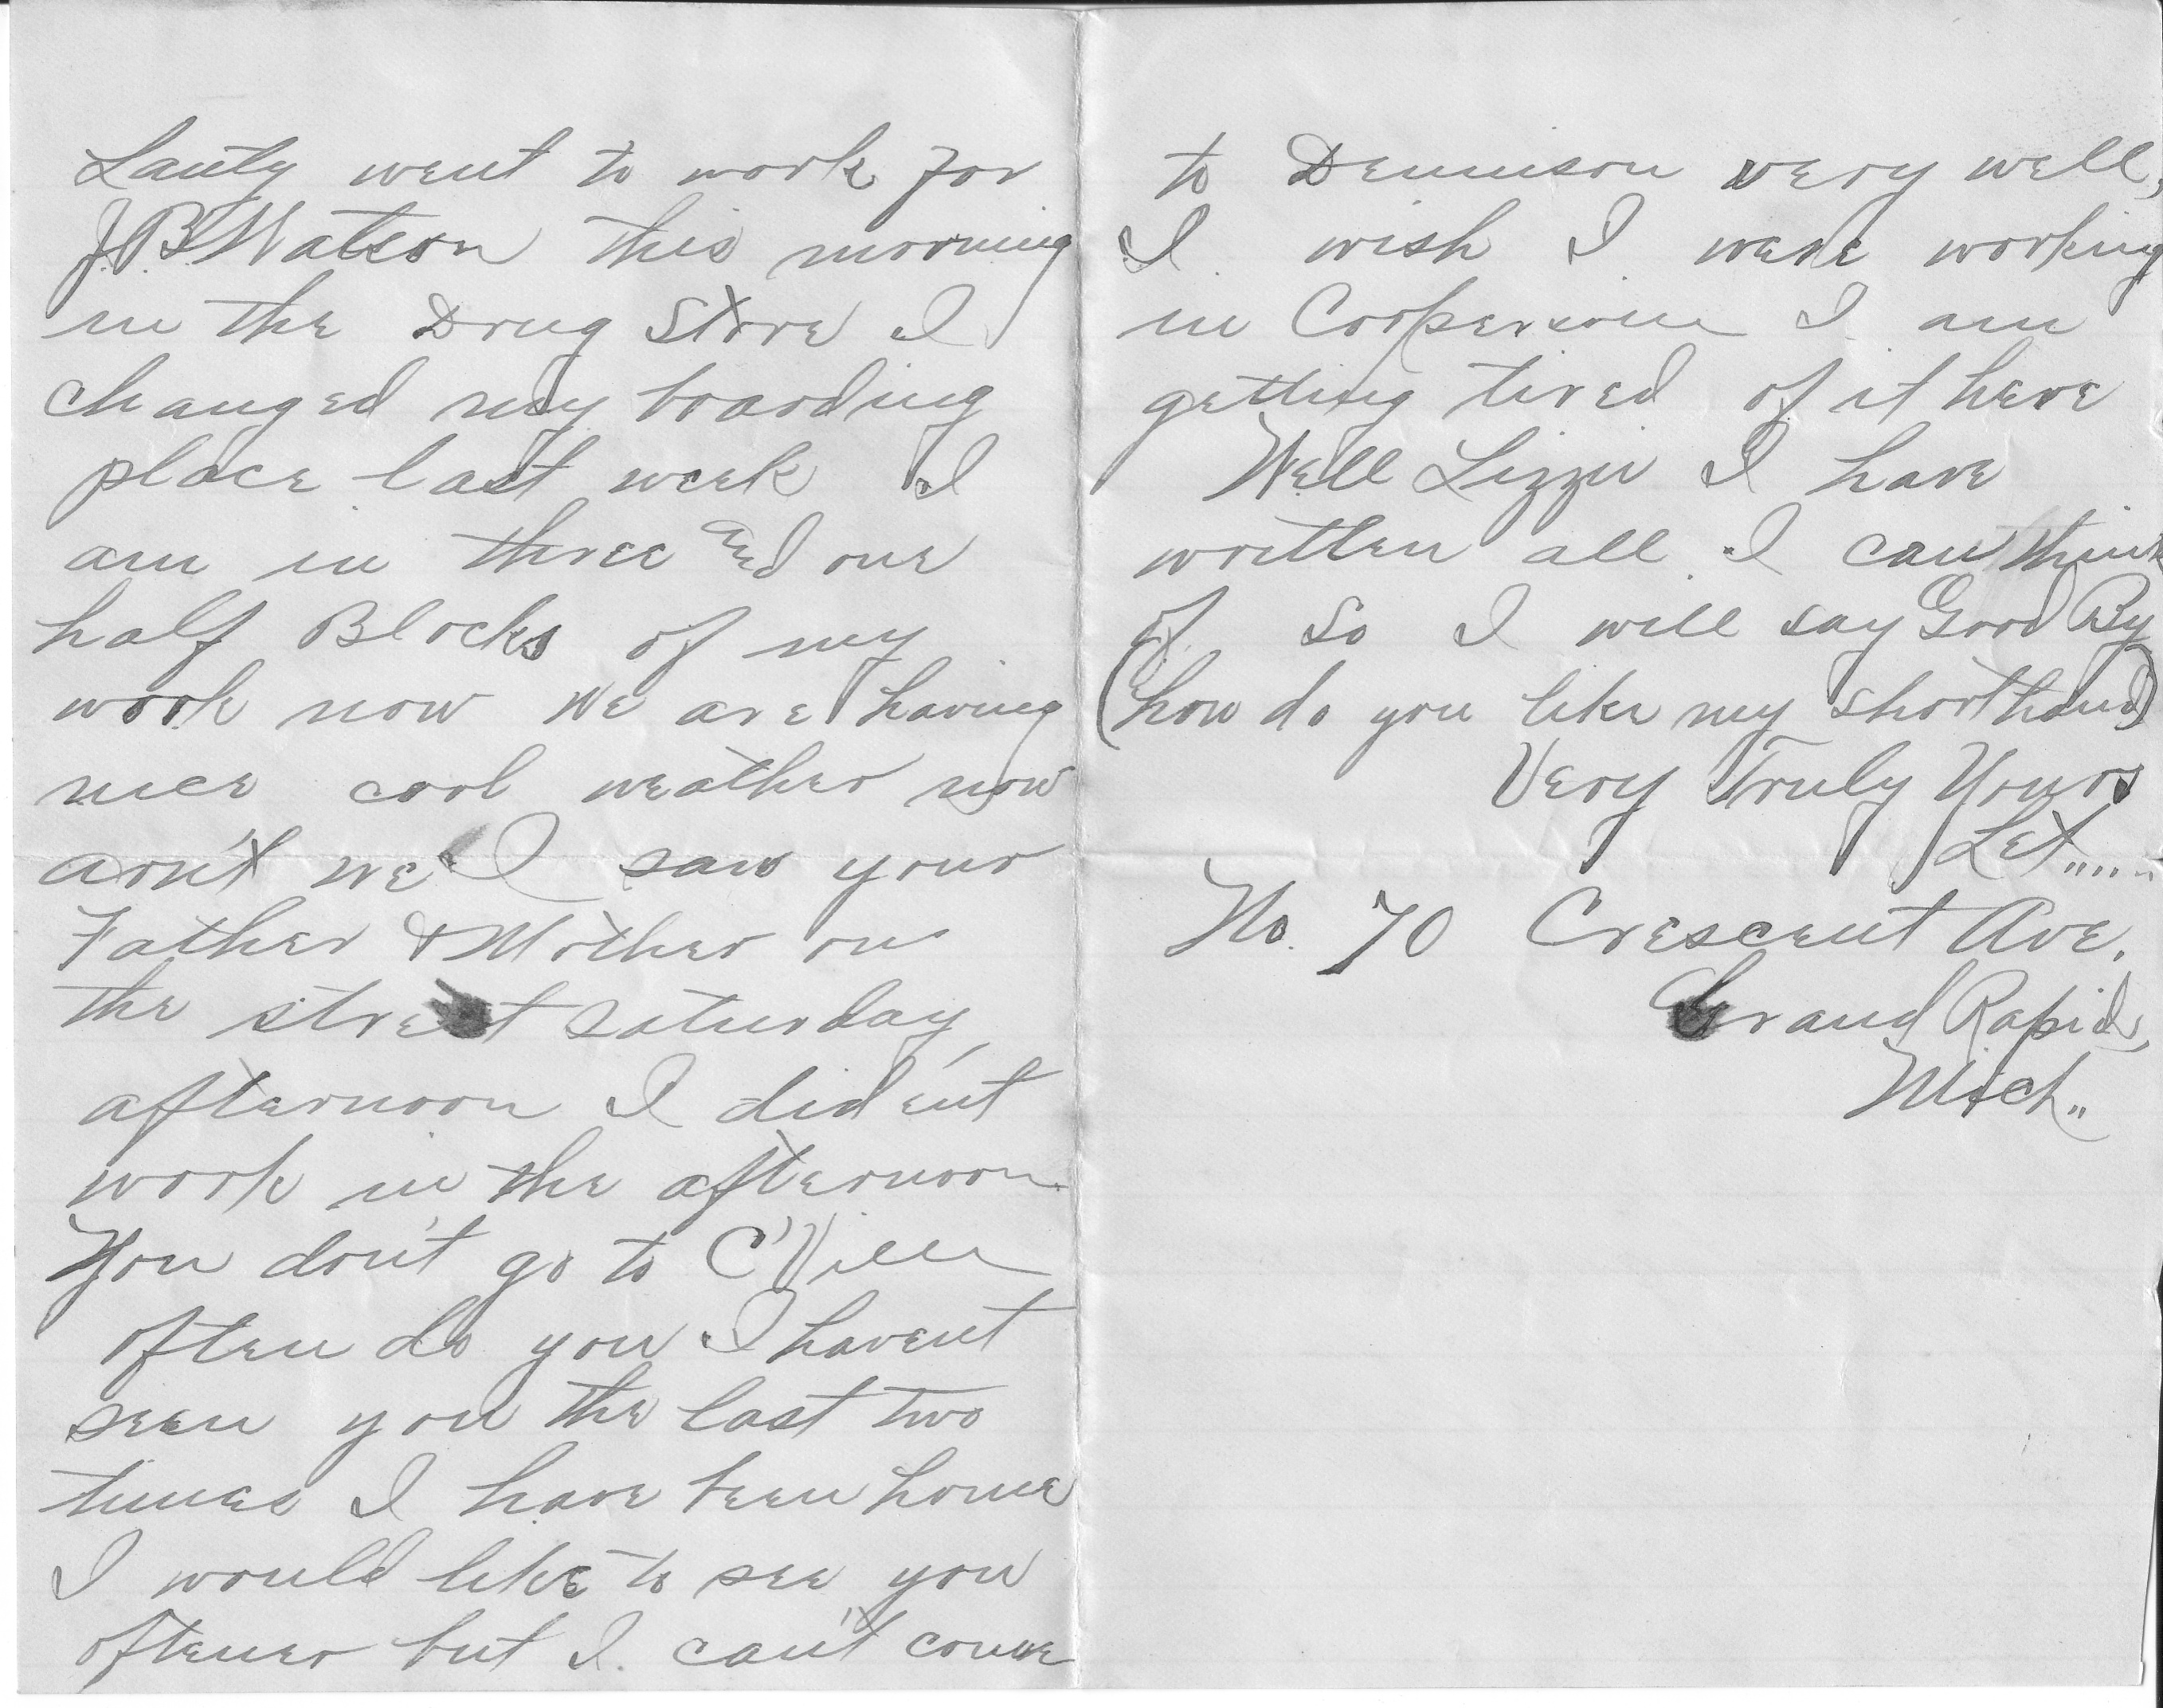 Lanty went to work for
J.B. Watson this morning
in the Drug Store I
changed my boarding
place last week I
am in three and one
half Blocks of my
work now We are having
nice cool weather now
aron't we I saw your
Father & Mother on
the street Saturday,
afternoon I did'ent
work in the afternoon
You don't go to C'Ville
often do you I havent
seen you the last two
times I have been home
I would like to see you
oftener but I. can't come
to Dennison very well,
I wish I were working
in Coopersvine I am
getting tired of it here
Well Lizzie I have
written all I can think
of So I will say Good By
(how do you like my shorthand)
Very Truly Yours
Let.....
No. 70 Crescent Ave.
Grand Rapids,
Mich..